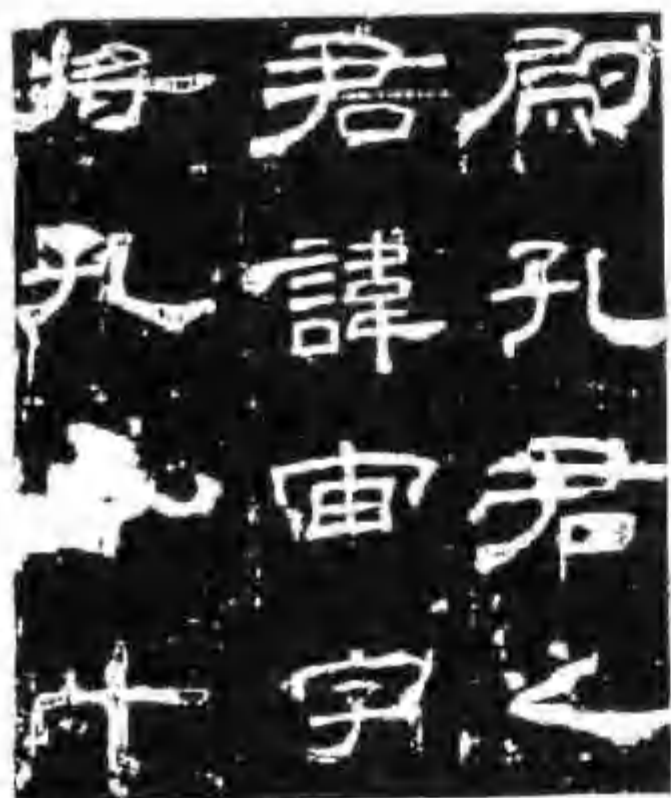 尉孔君之
君諱宙字
將孔十